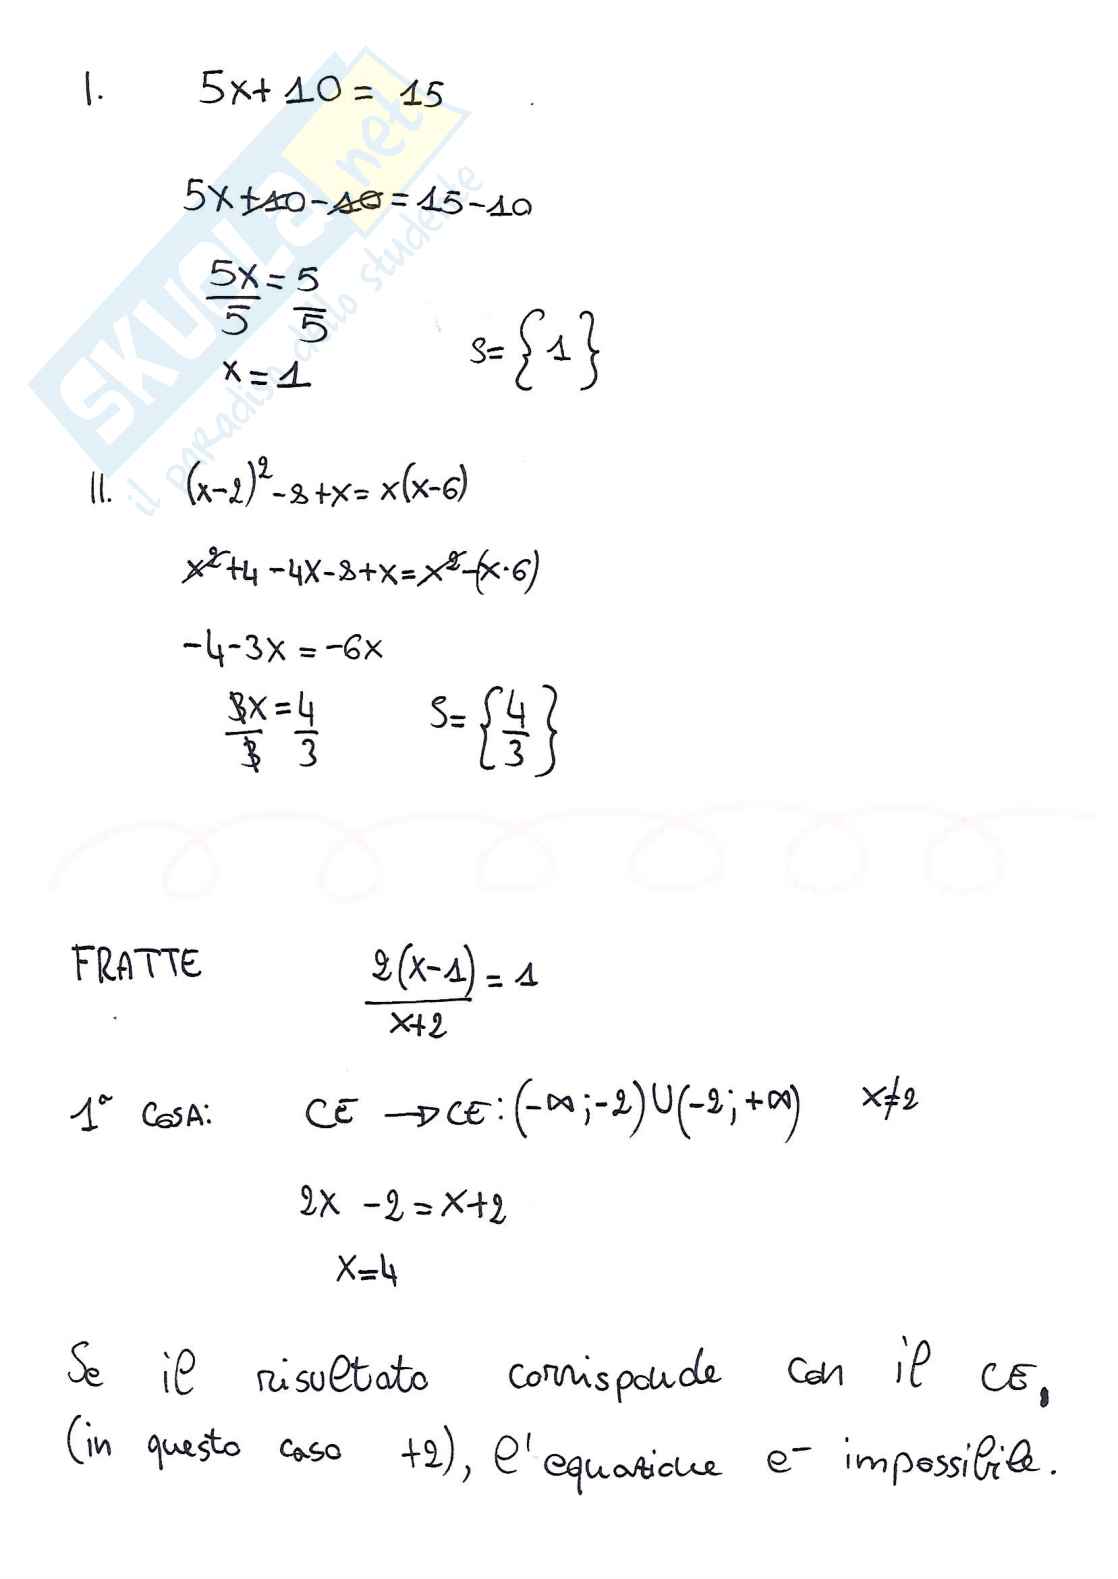 I. 5x+10= 15
5x+10-10=15-10
5x=5
5 5
x=1 S={1}
II. (x-2)²-8+x= x(x-6)
x²+4-4x-8+x=x²-(x·6)
-4-3x=-6x
3x=4 S={4/3}
3 3
FRATTE 2(x-1)=1
x+2
1ª COSA: CE → CE:(-∞;-2)∪(-2;+∞) x≠2
2x -2=x+2
x=4
Se il risultato corrisponde con il CE,
(in questo caso +2), l'equazione è impossibile.
SKUOLA.net
il paradiso dello studente